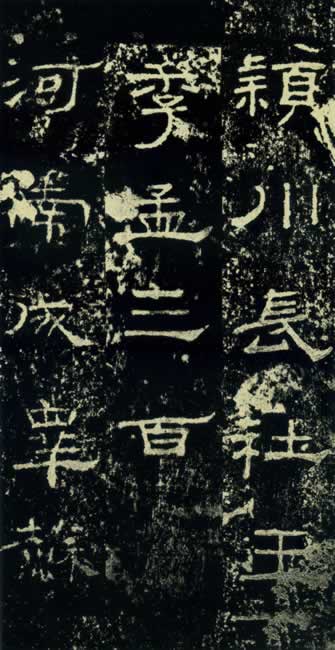 穎川長社王
季孟三百
河南成皋蘇